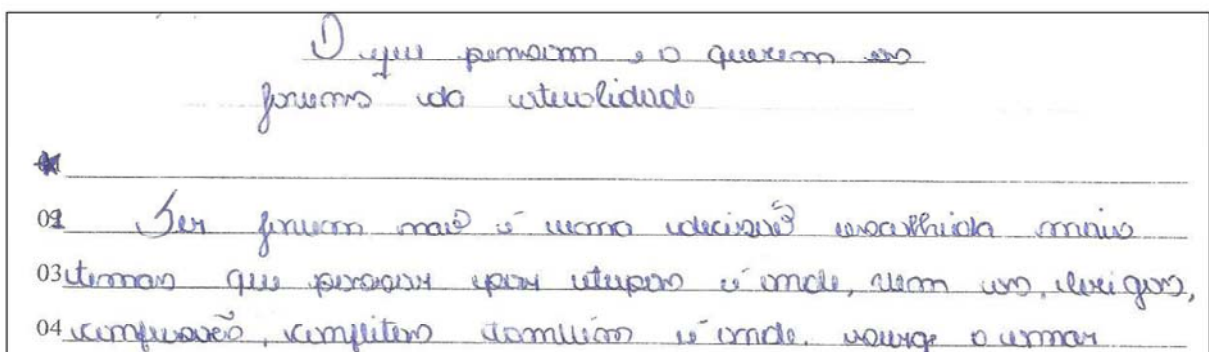 O que pensam e o querem os
jovens da atualidade
01
02 Ser jovem não é uma decisão escolhida mais
03 temos que passar por etapas é onde, vem as, brigas,
04 confusões, conflitos também é onde. surge o amor